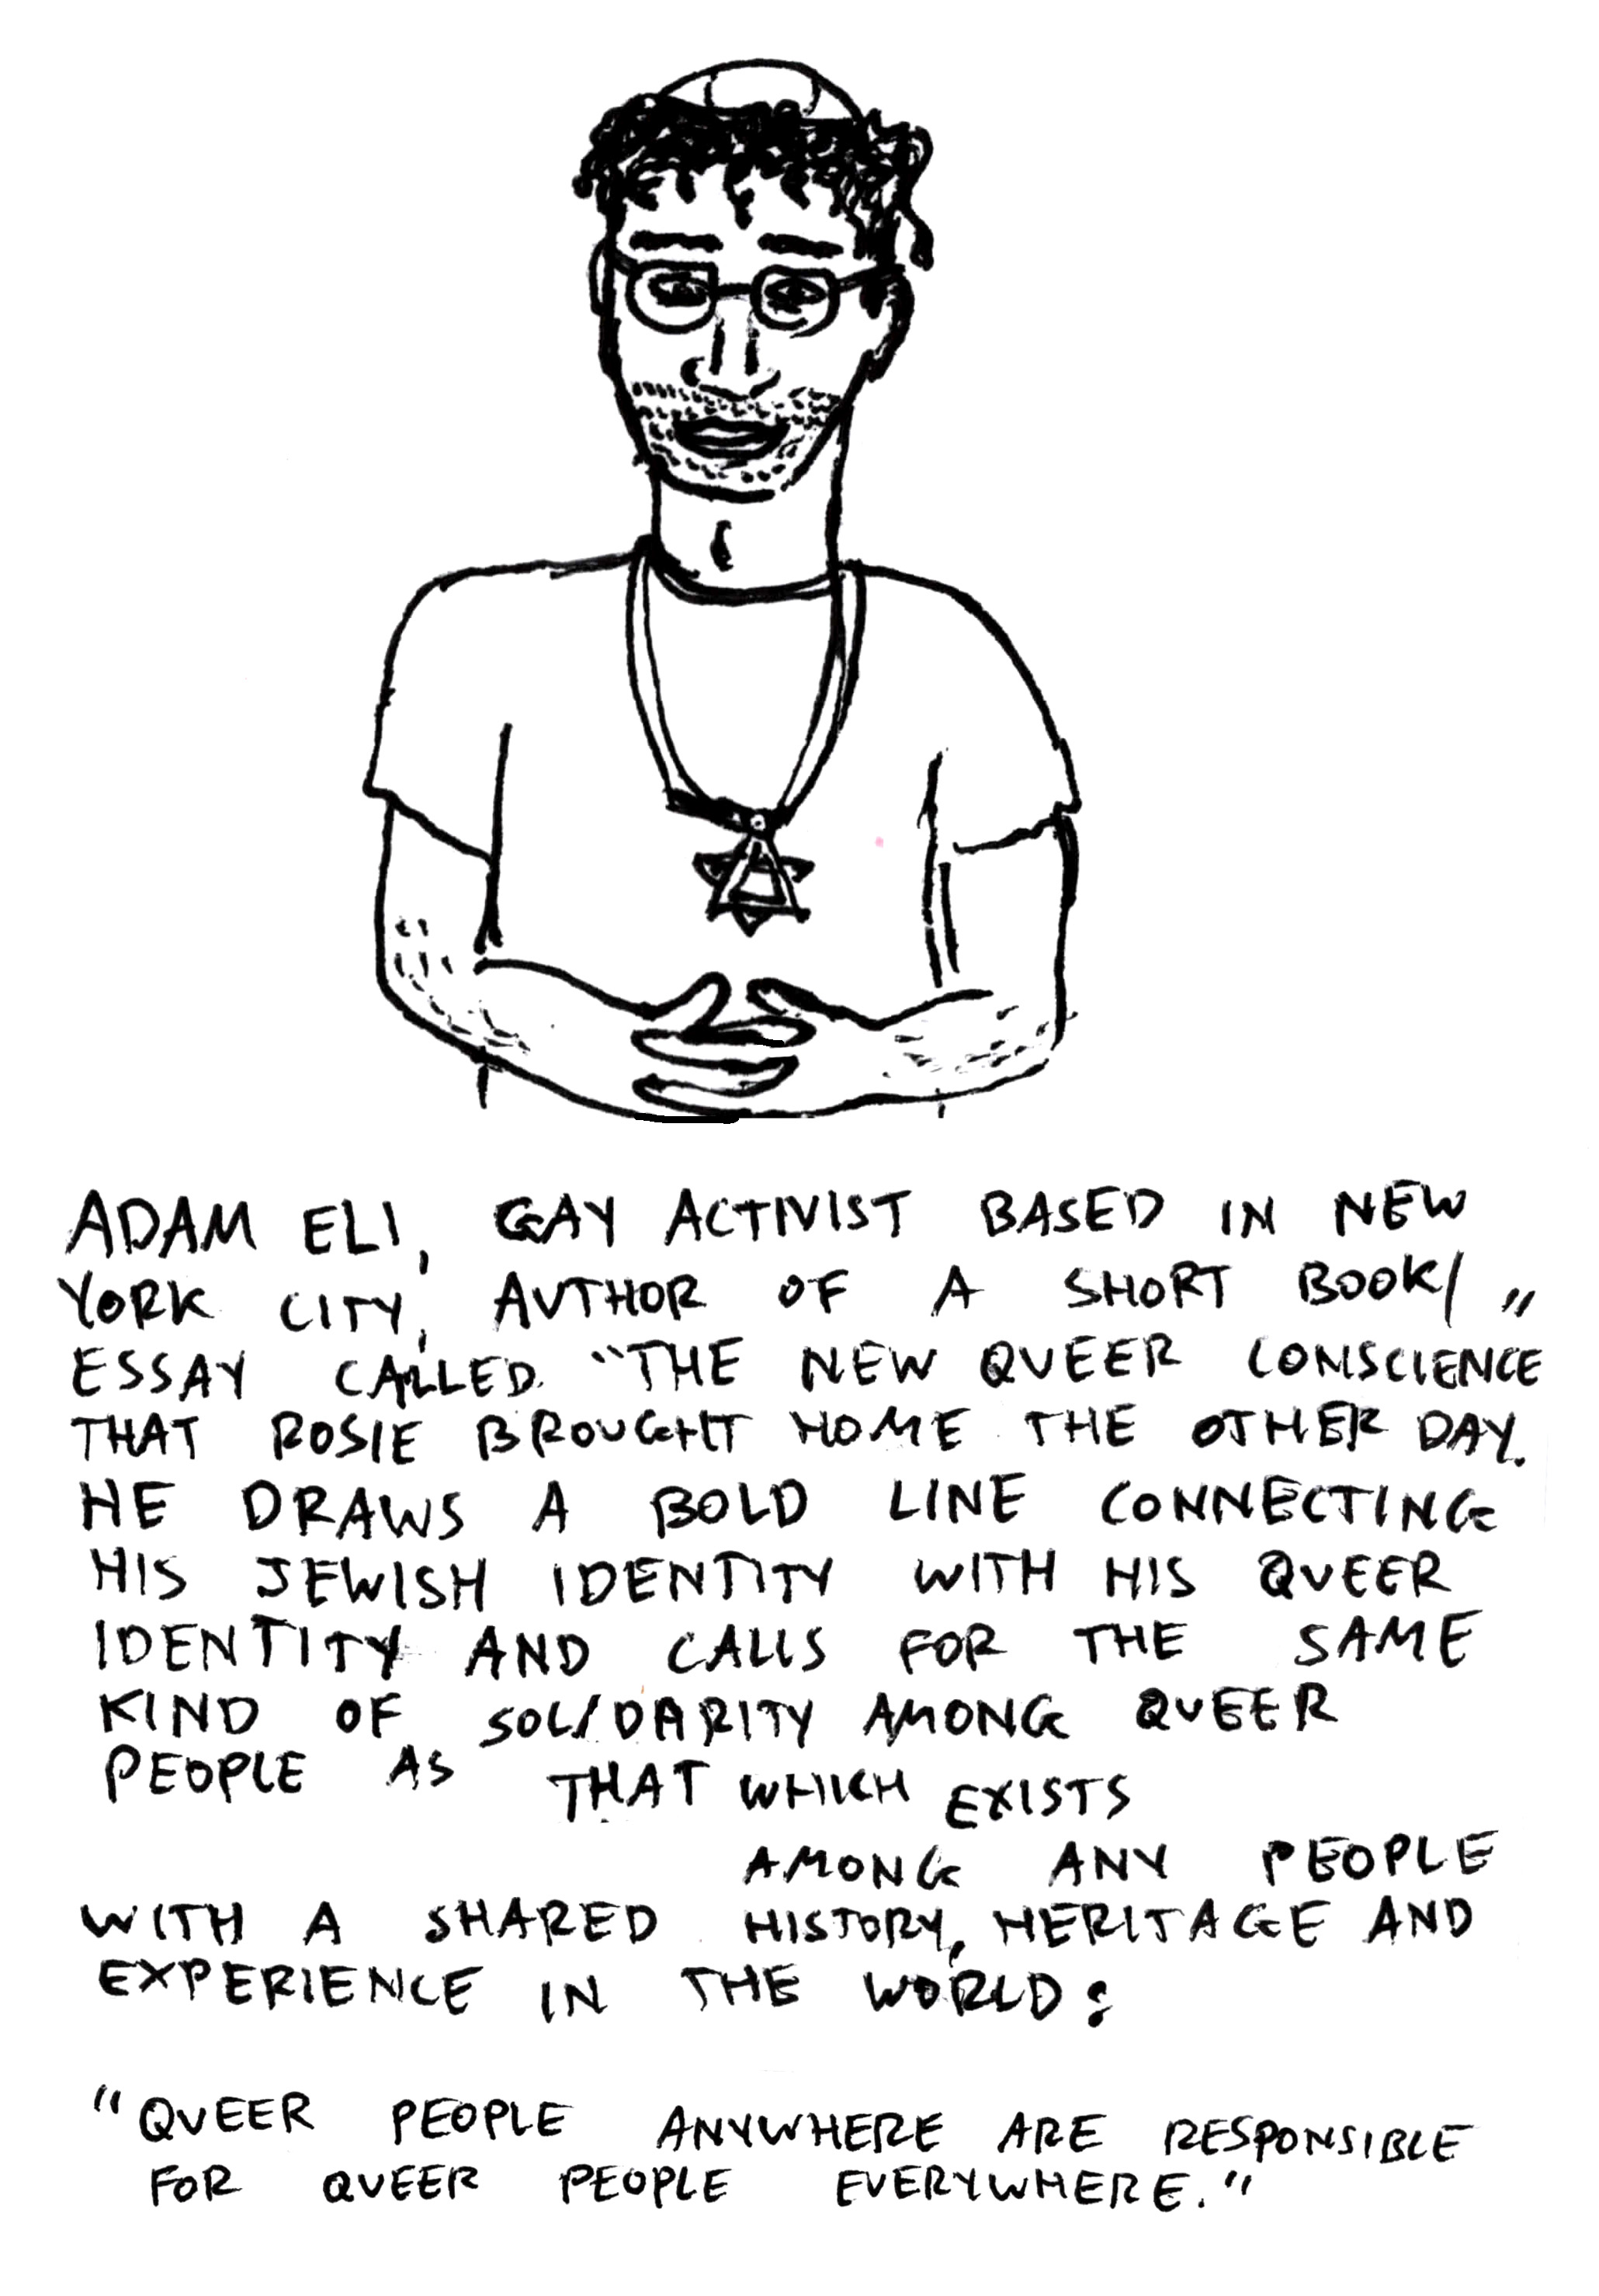 ADAM ELI, GAY ACTIVIST BASED IN NEW
YORK CITY, AUTHOR OF A SHORT BOOK/
ESSAY CALLED "THE NEW QUEER CONSCIENCE"
THAT ROSIE BROUGHT HOME THE OTHER DAY.
HE DRAWS A BOLD LINE CONNECTING
HIS JEWISH IDENTITY WITH HIS QUEER
IDENTITY AND CALLS FOR THE SAME
KIND OF SOLIDARITY AMONG QUEER
PEOPLE AS THAT WHICH EXISTS
AMONG ANY PEOPLE
WITH A SHARED HISTORY, HERITAGE AND
EXPERIENCE IN THE WORLD:
"QUEER PEOPLE ANYWHERE ARE RESPONSIBLE
FOR QUEER PEOPLE EVERYWHERE."